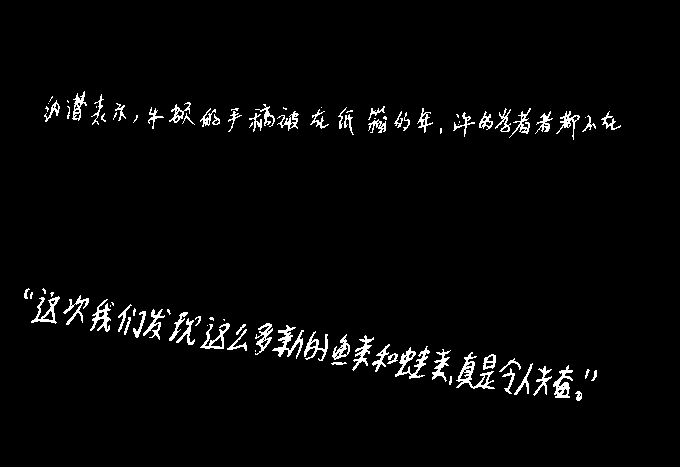 纳潜表示,牛顿的手稿被在纸箱的年,许的学着者都不在
“这次我们发现这么多新的鱼类和蛙类,真是令人失望。”